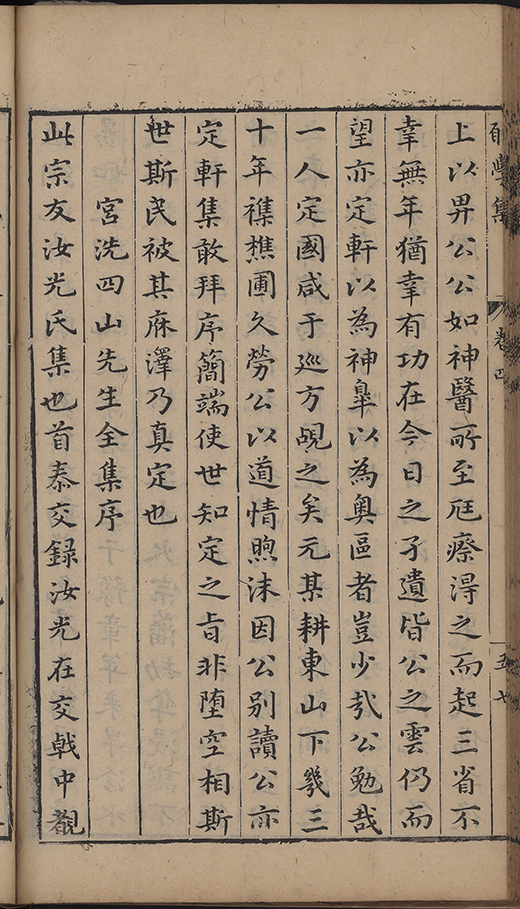 上以畀公公如神醫所至尫瘵淂之而起三省不
幸無年猶幸有功在今日之孑遺皆公之雲仍而
望亦定軒以為神臯以為奥區者豈少㢤公勉哉
一人定國咸于廵方覘之矣元某耕東山下㡬三
十年襍樵圃久勞公以道情煦沫因公别讀公亦
定軒集敢拜序簡端使世知定之旨非堕空相斯
世斯民被其庥澤乃真定也
宮洗四山先生全集序
此宗友汝光氏集也首泰交録汝光在交戟中覩
集
卷四
五十